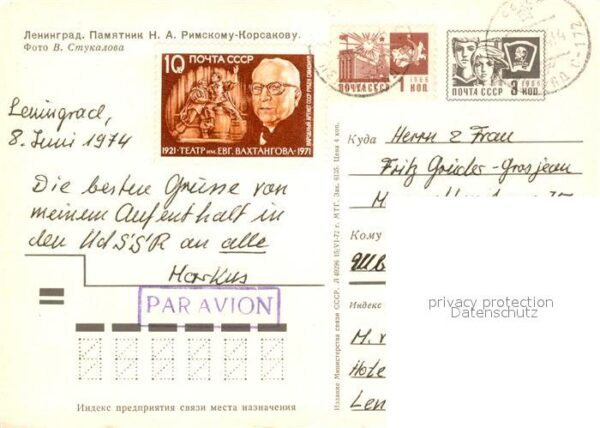 Ленинград. Памятник Н. А. Римскому-Корсакову.
Фото В. Стукалова
10 ПОЧТА СССР
НАРОДНЫЙ АРТИСТ СССР РУБЕН СИМОНОВ
1921 · ТЕАТР ИМ. ЕВГ. ВАХТАНГОВА · 1971
1966
ПОЧТА СССР 1 КОП
1966
ПОЧТА СССР 3 КОП.
Leningrad,
8. Juni 1974
Die besten Grüsse von
meinem Aufenthalt in
den UdSSR an alle
Markus
PAR AVION
Индекс предприятия связи места назначения
Издание Министерства связи СССР. 15/VI-72 г. МТГ. Зак. Цена 4 коп.
Куда Herrn & Frau
Fritz Grosjean
Кому
Шв
Индекс
M.
Hote
Len
privacy protection
Datenschutz